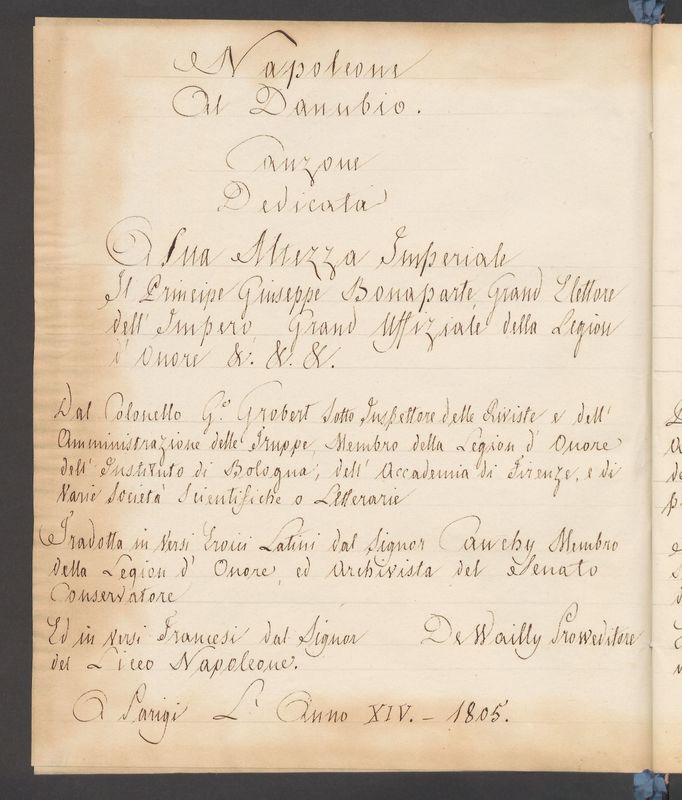 Napoleone
Al Danubio.
Canzone
Dedicata
A Sua Altezza Imperiale
Il Principe Giuseppe Bonaparte, Grand Elettore
dell' Impero, Grand Uffiziale della Legion
d' Onore &. &. &.
Dal Colonello G.º Grobert Sotto Inspettore delle Riviste e dell'
Amministrazione delle Truppe, Membro della Legion d' Onore
dell' Instituto di Bologna, dell' Accademia di Firenze, e di
Varie Società Scientifiche o Letterarie
Tradotta in Versi Eroici Latini dal Signor Cauchy Membro
della Legion d' Onore, ed Archivista del Senato
Conservatore
Ed in versi Francesi dal Signor De Wailly Proweditore
del Liceo Napoleone.
A Parigi L' Anno XIV. - 1805.